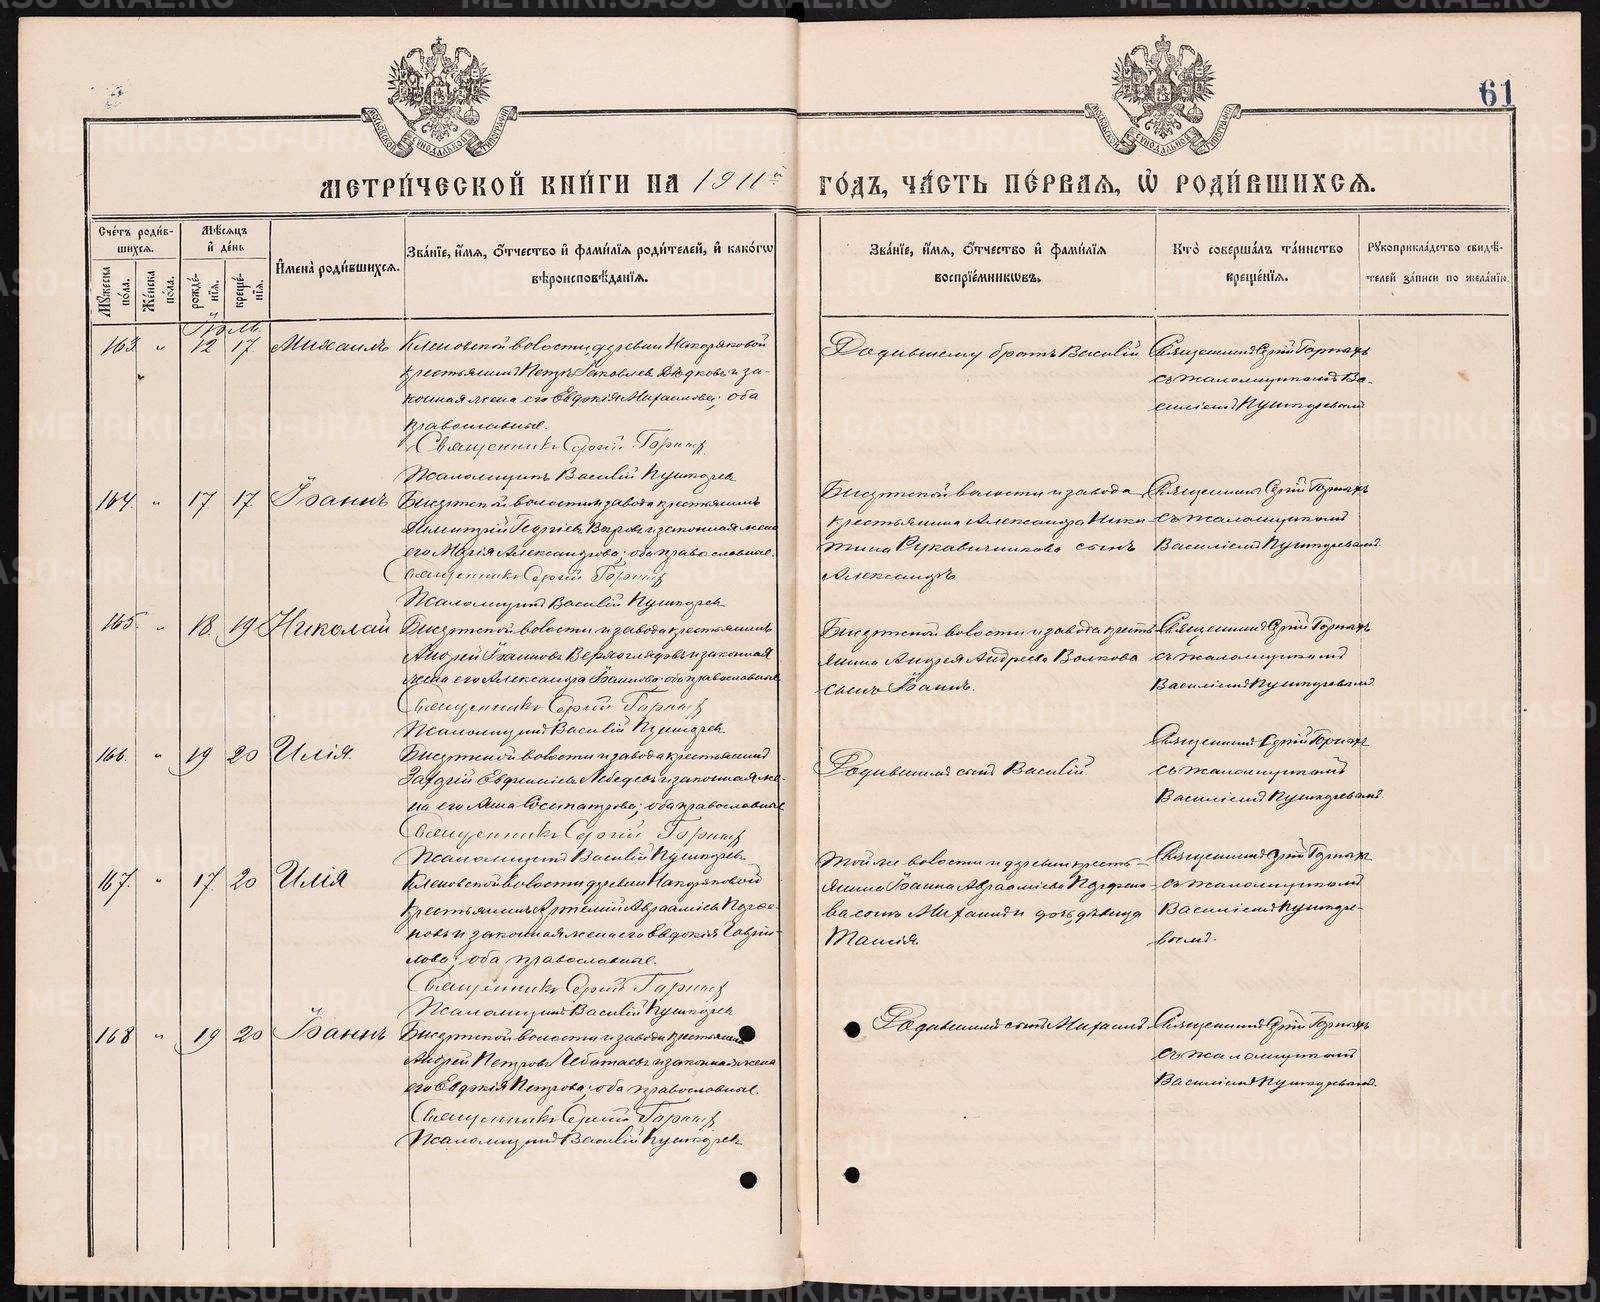 61
МЕТРИ́ЧЕСКОЙ КНИ́ГИ НА 1911й ГО́ДЪ, ЧА́СТЬ ПЕ́РВАѦ, Ѽ РОДИ́ВШИХСѦ.
Сче́тъ роди́в-
шихсѧ.
Мѣ́сѧцъ
и҆ де́нь
Мꙋ́жеска по́ла.
Же́нска по́ла.
рожде́-
нїѧ.
креще́-
нїѧ.
И҆мена̀ роди́вшихсѧ.
Зва́нїе, и҆́мѧ, ѻ҆́тчество и҆ фами́лїѧ роди́телей, и҆ како́гѡ
вѣроисповѣ́данїѧ.
Зва́нїе, и҆́мѧ, ѻ҆́тчество и҆ фами́лїѧ
воспрїе́мникѡвъ.
Кто̀ соверша́лъ та́инство
креще́нїѧ.
Рꙋкоприкла́дство свидѣ́-
телей за́писи по жела́нїю.
163. " 12 17. Михаилъ
Кленовской волости, деревни Накоряковой
крестьянинъ Петръ Яковлевъ Дѣдковъ и за-
конная жена его Евдокія Михаилова; оба
православные.
Священникъ Сергій
Псаломщикъ Василій Пушкаревъ
Родившему братъ Василій
Священникъ Сергій
съ псаломщикомъ Ва-
силіемъ Пушкаревымъ
164. " 17 17 Іоаннъ
Бисертской волости и завода крестьянинъ
Димитрій Георгіевъ и законная жена
его Марія Александрова; оба православные.
Священникъ Сергій
Псаломщикъ Василій Пушкаревъ
Бисертской волости и завода
крестьянина Александра Ники-
тина Рукавичникова сынъ
Александръ
Священникъ Сергій
съ псаломщикомъ
Василіемъ Пушкаревымъ.
165. " 18. 19 Николай
Бисертской волости и завода крестьянинъ
Андрей Іоанновъ Верхоглядовъ и законная
жена его Александра Іоаннова; оба православные
Священникъ Сергій
Псаломщикъ Василій Пушкаревъ
Бисертской волости и завода кресть-
янина Андрея Андреева Волкова
сынъ Іоаннъ.
Священникъ Сергій
съ псаломщикомъ
Василіемъ Пушкаревымъ.
166. " 19 20 Илія.
Бисертской волости и завода крестьянинъ
Евфиміевъ Лебедевъ и законная же-
на его Анна Сосипатрова; оба православные
Священникъ Сергій
Псаломщикъ Василій Пушкаревъ
Родившимъ сынъ Василій
Священникъ Сергій
съ псаломщикомъ
Василіемъ Пушкаревымъ.
167. " 17. 20 Илія
Кленовской волости, деревни Накоряковой
крестьянинъ Артемій Авраамієвъ
и законная жена его Евдокія Гаврии-
лова; оба православные.
Священникъ Сергій
Псаломщикъ Василій Пушкаревъ
Той же волости и деревни кресть-
янина Іоанна Авраамієва
сынъ Михаилъ и дочь дѣвица
Таисія.
Священникъ Сергій
съ псаломщикомъ
Василіемъ Пушкаре-
вымъ.
168 " 19 20 Іоаннъ
Бисертской волости и завода крестьянинъ
Андрей Петровъ Чебатаевъ и законная жена
его Евдокія Петрова; оба православные.
Священникъ Сергій
Псаломщикъ Василій Пушкаревъ
Родившимъ сынъ Михаилъ
Священникъ Сергій
съ псаломщикомъ
Василіемъ Пушкаревымъ.
METRIKI.GASO-URAL.RU